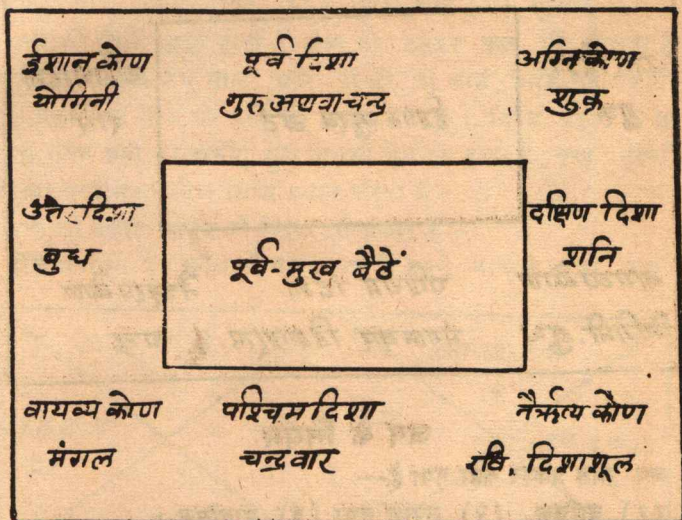 ईशान कोण
योगिनी
पूर्व दिशा
गुरु अथवा चन्द्र
अग्नि कोण
शुक्र
उत्तर दिशा
बुध
पूर्व-मुख बैठें
दक्षिण दिशा
शनि
वायव्य कोण
मंगल
पश्चिम दिशा
चन्द्रवार
नैर्ऋत्य कोण
रवि. दिशाशूल